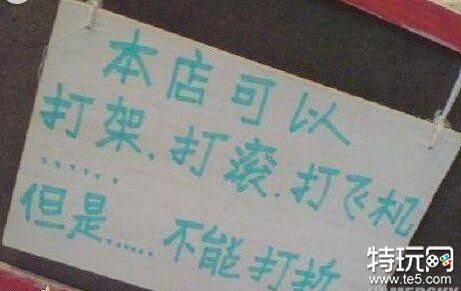 本店可以
打架、打滚、打飞机
……
但是……不能打折
特玩网
www.te5.com